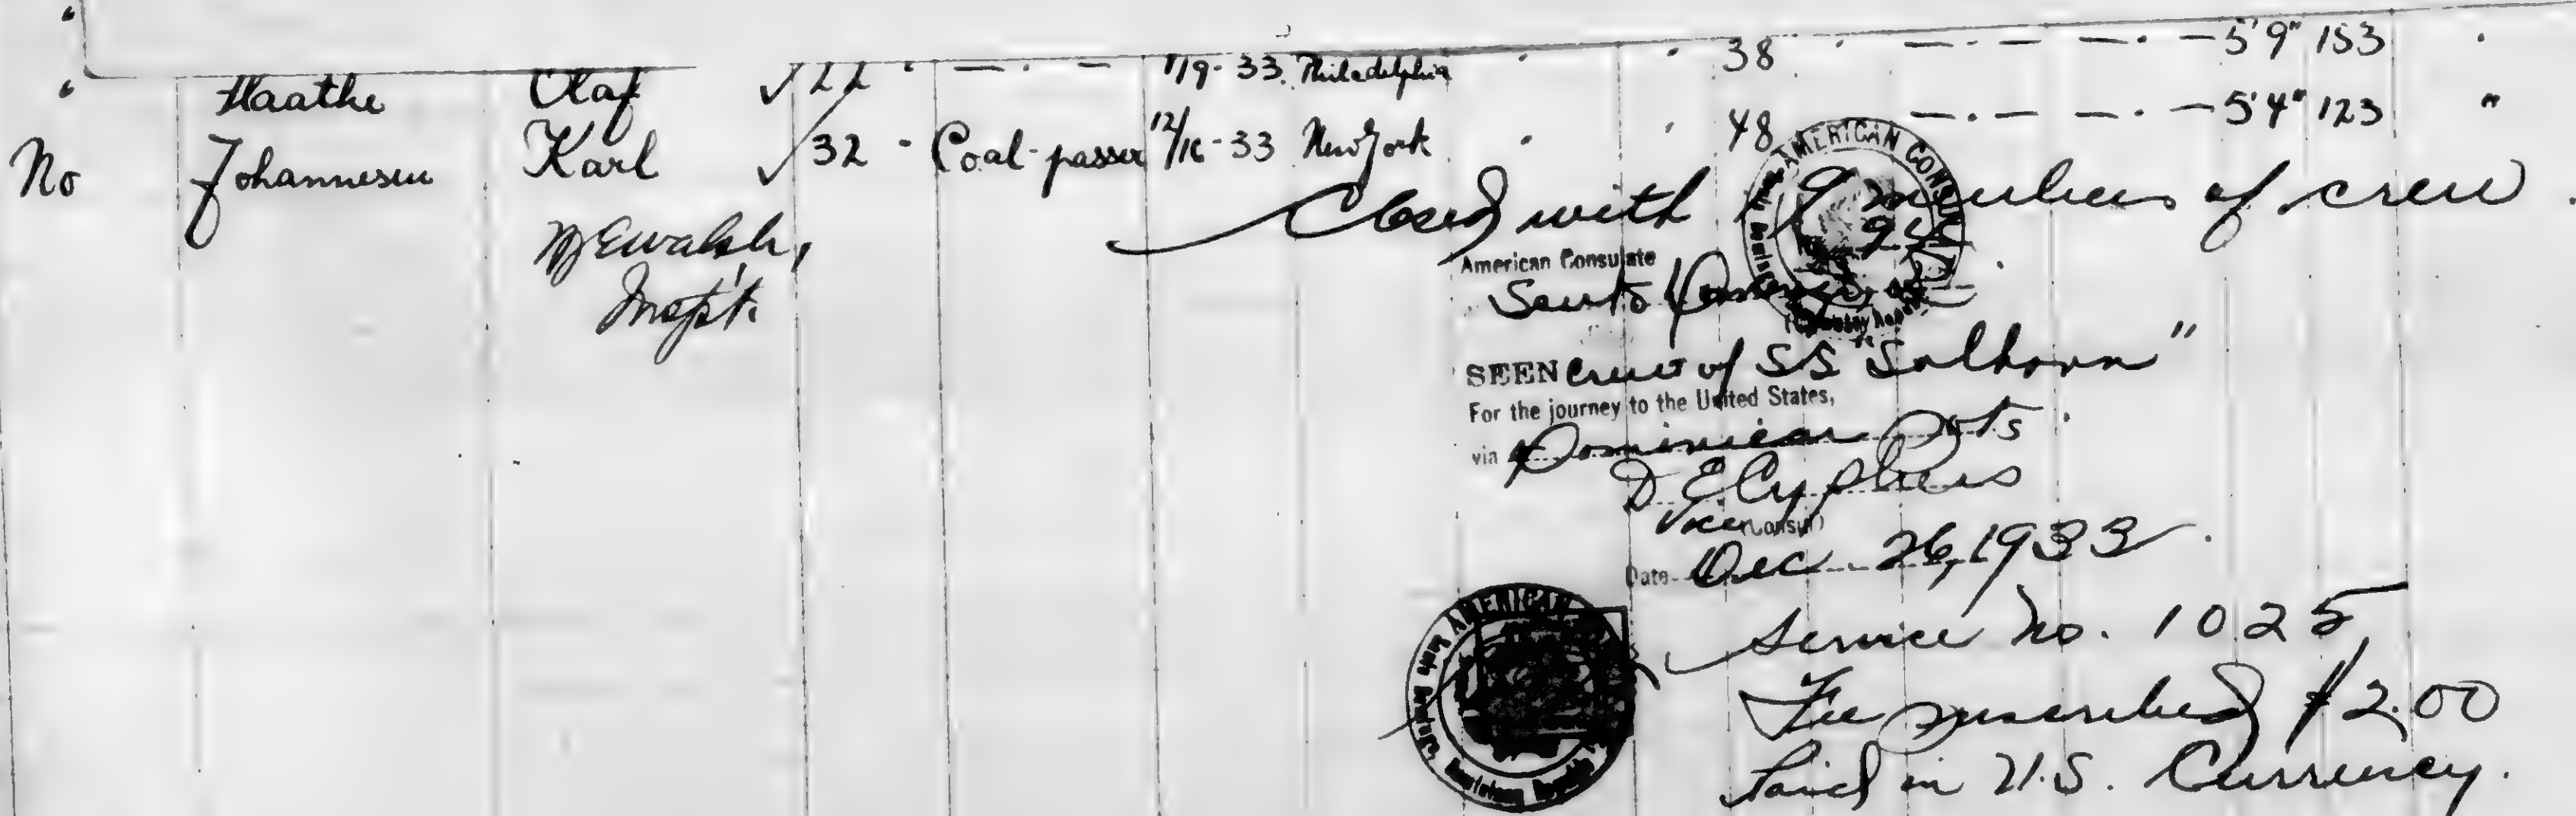 " Haathe Olaf √ 22 " — . — 1/9-33. Philadelphia " " 38 " — . — — . — 5'9" 153 "
No Johannesen Karl √ 32 - Coal-passer 12/16-33 New York " " 48 — . — — . — 5'4" 123 "
Closed with 19 members of crew.
Walsh,
Insp't.
AMERICAN CONSULATE
American Consulate
Santo Domingo
SEEN crew of SS "Solhavn"
For the journey to the United States,
via Dominican Ports
D E Cyphers
Vice Consul
Date Dec 26, 1933
AMERICAN
Dominican Republic
Service No. 1025
Fee prescribed $2.00
Paid in U.S. Currency.